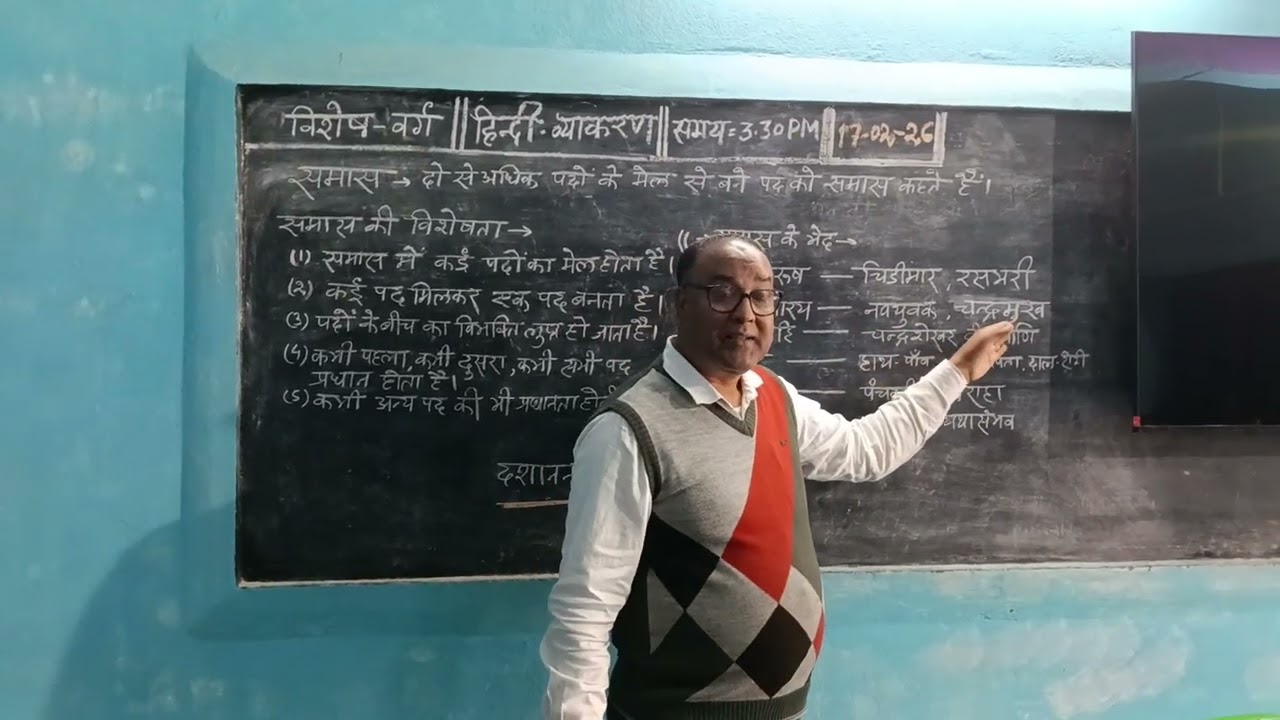 विशेष-वर्ग || हिन्दी-व्याकरण || समय=3.30PM || 17-02-26
समास → दो से अधिक पदों के मेल से बने पद को समास कहते हैं।
समास की विशेषता →
(1) समास में कई पदों का मेल होता है।
(2) कई पद मिलकर एक पद बनता है।
(3) पदों के बीच का विभक्ति लुप्त हो जाता है।
(4) कभी पहला, कभी दुसरा, कभी सभी पद
प्रधान होता है।
(5) कभी अन्य पद की भी प्रधानता
दशानन
के भेद →
— चिडीमार, रसभरी
— नवयुवक, चन्द्रमुख
— चन्द्रशेखर
— हाथ-पाँव
—
यथासंभव